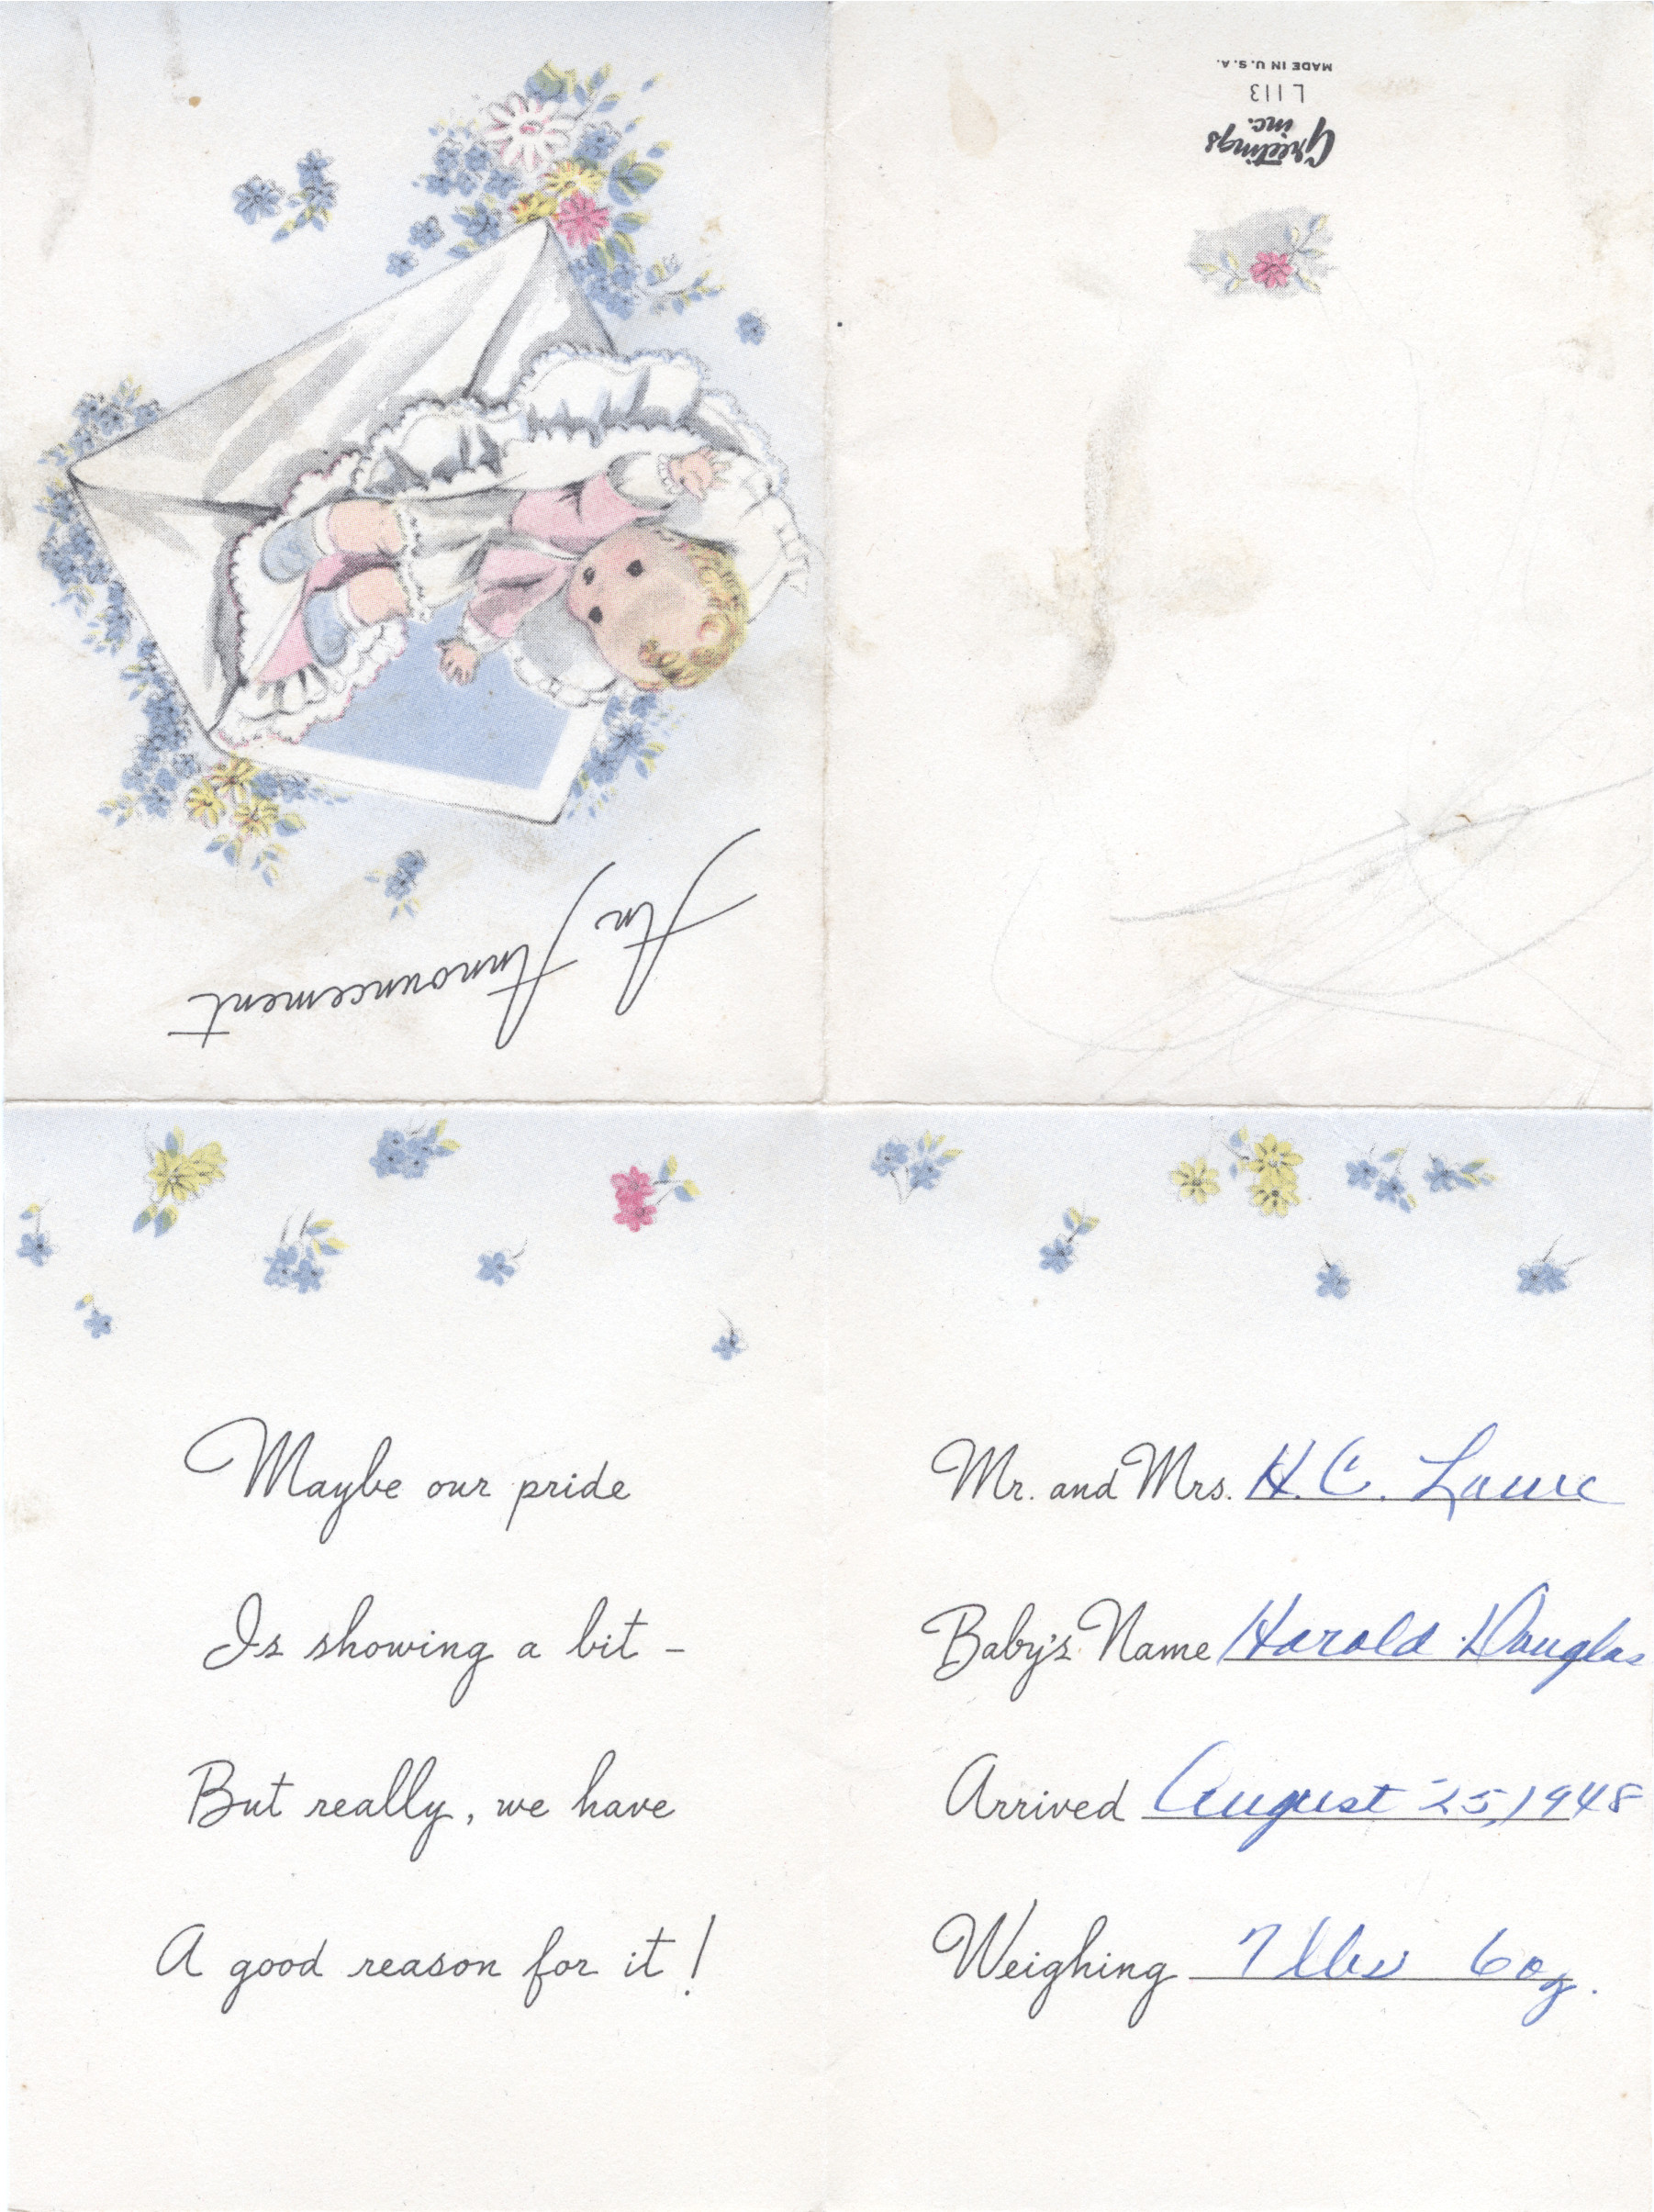 An Announcement
Greetings
inc.
L113
MADE IN U.S.A.
Maybe our pride
Is showing a bit –
But really, we have
A good reason for it!
Mr. and Mrs. H. C.
Baby's Name Harold Douglas
Arrived August 25, 1948
Weighing 7 lbs 6 oz.